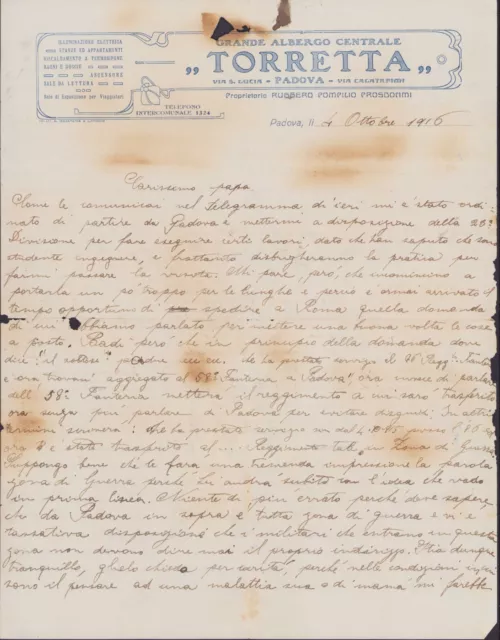 ILLUMINAZIONE ELETTRICA
STANZE ED APPARTAMENTI
RISCALDAMENTO A TERMOSIFONE
BAGNI E DOCCE
ASCENSORE
SALE DA LETTURA
Sale di Esposizione per Viaggiatori
GRANDE ALBERGO CENTRALE
„ TORRETTA „
VIA S. LUCIA - PADOVA - VIA CALATAFIMI
Proprietario RUGGERO POMPILIO PROSDOCIMI
TELEFONO
INTERCOMUNALE 1224
Padova, li 4 Ottobre 1916
Carissimo papà
Come le comunicai nel telegramma di ieri mi è stato ordi-
nato di partire da Padova e mettermi a disposizione della 23ª
Divisione per fare eseguire certi lavori, dato che han saputo che sono
studente ingegnere, e frattanto la pratica per
farmi passare la. Mi pare, però, che incominciano a
portarla un pò troppo per le lunghe e perciò è ormai arrivato il
tempo opportuno di spedire a Roma quella domanda
di cui abbiamo parlato per mettere una buona volta le cose
a posto. Badi però che in principio della domanda dove
dice: "il sottoscritto ha prestato servizio al 76 Regg. Fant.
e ora trovasi aggregato al 58º Fanteria a Padova" ora invece di parlare
dell' 58º Fanteria metterà il reggimento a cui sarò trasferito
ora senza più parlare di Padova per evitare disguidi. In altri
termini scriverà: che ha prestato servizio
ora è stato trasferito al ... Reggimento tale in Zona di Guerra
Suppongo bene che le farà una tremenda impressione la parola
zona di Guerra perché Lei andrà subito con l'idea che vado
in prima linea. Niente di più errato perché deve sapere
che da Padova in sopra è tutta zona di guerra e vi è
tassativa disposizione che i militari che entrano in questa
zona non devono dire mai il proprio indirizzo. Stia dunque
tranquillo, glielo chiedo per carità, perché nelle condizioni in cui
sono il pensare ad una malattia sua o di mamà mi farebbe